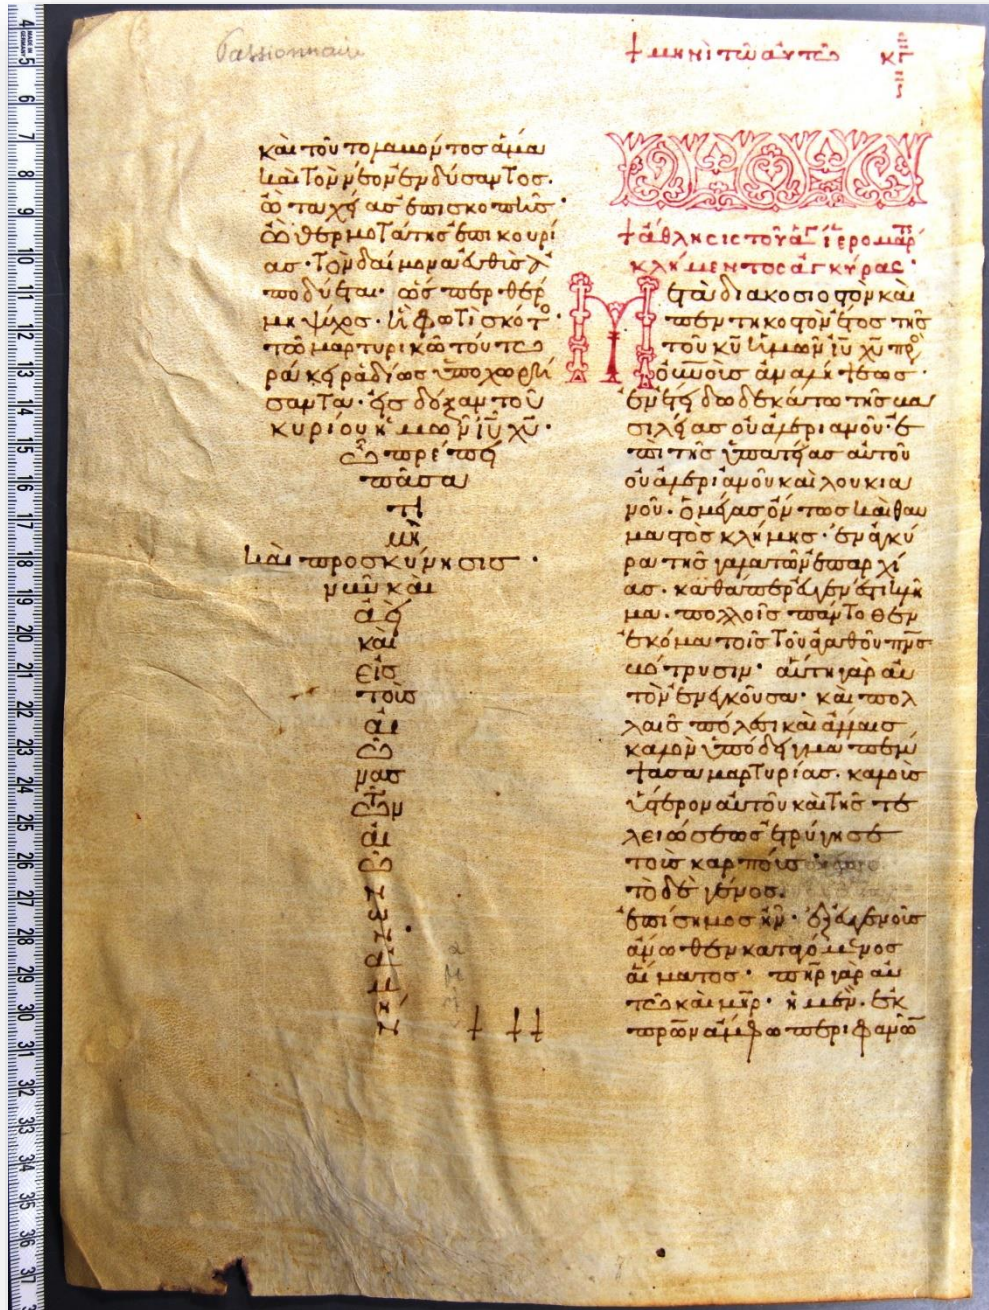 Passionnaire
+ μηνὶ τῶ αὐτῶ κγ
καὶ τοῦ το λαμόντος ἅμα
καὶ τὸν νέον ἐνδύσαντος·
ὢ ταχείας ἐπισκοπῆς·
ὢ θερμοτάτης ἐπικουρί
ας· τὸν δαίμονα αὖθις
ποδύεται· ὥσπερ θέρ
μη ψύχος· καὶ φωτὶ σκότο·
τῶ μαρτυρικῶ τούτω
ῥάκει ῥαδίως ὑποχωρή
σαντα· εἰς δόξαν τοῦ
κυρίου ἡμῶν ἰῦ χῦ·
ὧ πρέπει
πᾶσα
τι
μὴ
καὶ προσκύνησις·
νῦν καὶ
ἀεὶ
καὶ
εἰς
τοὺς
αἰ
ῶ
νας
τῶν
αἰ
ώ
+ ἄθλησις τοῦ ἁγί ἱερομάρ
κλήμεντος ἀγκύρας·
Μετὰ διακοσιοστὸν καὶ
πεντηκοστὸν ἔτος τῆς
τοῦ κῦ ἡμῶν ἰῦ χῦ πρὸ
ἀναλήψεως·
ἐν ἔτει δωδεκάτω τῆς βα
σιλείας οὐαλεριανοῦ· ἐ
πὶ τῆς ὑπατείας αὐτοῦ
οὐαλεριανοῦ καὶ λουκια
νοῦ· ὁ μέγας ὄντως καὶ θαυ
μαστὸς κλήμης· ἐν ἀγκύ
ρα τῆς γαλατῶν ἐπαρχί
ας· καθάπερ εὐγενὲς βλάστη
μα· πολλοῖς πάντοθεν
ἐκόμα τοῖς τοῦ ἀγαθοῦ πνς
βότρυσιν· αὕτη γὰρ αὐ
τὸν ἐνεγκοῦσα· καὶ πολ
λαῖς πόλεσι καὶ ἄλλαις
καλὸν ὑπόδειγμα πέμ
ψασα μαρτυρίας· καλοῖς
ὕστερον αὐτοῦ καὶ τῆς τε
λειώσεως ἐτρύγησε
τοῖς καρποῖς·
τὸ δὲ γένος
ἐπίσημος ἦν· ἐξ εὐγενοῦς
ἄνωθεν καταγόμενος
αἵματος· πηρ γὰρ αὐ
τῶ καὶ μηρ· ἡ μὲν· ἐκ
πρῶν ἄμφω περιφανῶν